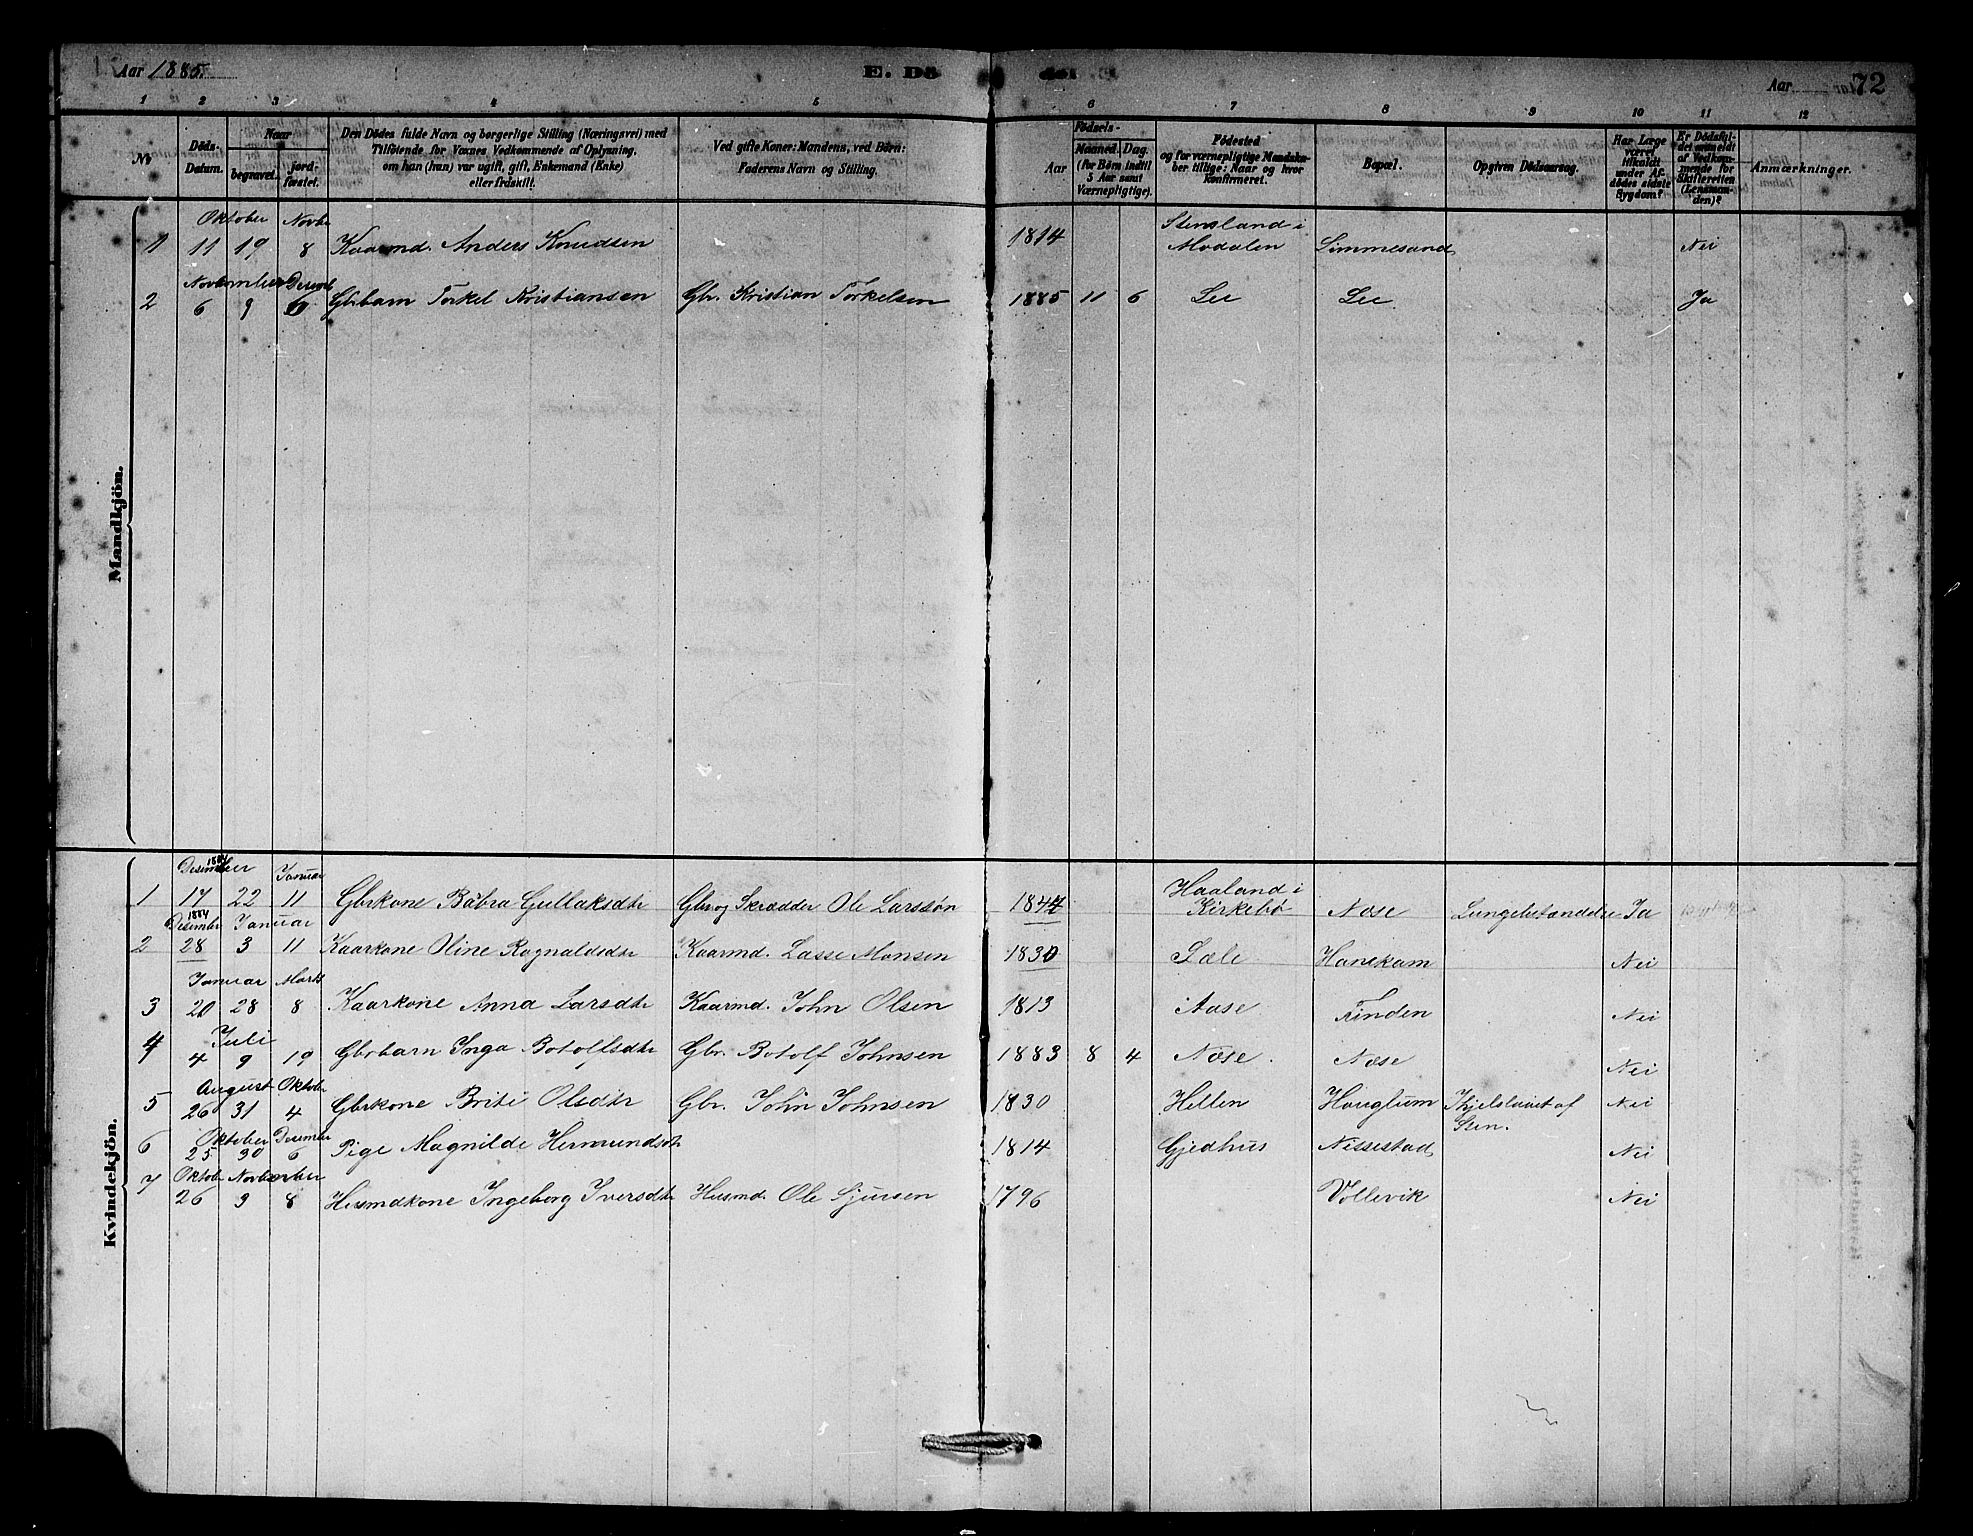 Aar 1885.
E. Dö
del
Aar 72
1 2 3 4 5 6 7 8 9 10 11 12
No
Döds-Datum.
Naar
begravet.
jord-fæstet.
Den Dödes fulde Navn og borgerlige Stilling (Næringsvei) med
Tilföiende for Voxnes Vedkommende af Oplysning,
om han (hun) var ugift, gift, Enkemand (Enke)
eller fraskilt.
Ved gifte Koner: Mandens, ved Börn:
Faderens Navn og Stilling.
Födsels-
Aar
Maaned. Dag.
(for Börn indtil
5 Aar samt
Værnepligtige).
Födested
og for værnepligtige Mandskaber tillige: Naar og hvor
konfirmeret.
Bopæl.
Opgiven Dödsaarsag.
Har Læge
været
tilkaldt
under Afdödes sidste
Sygdom?
Er Dödsfaldet anmeldt
af Vedkommende for
Skifteretten
(Lensmanden)?
Anmærkninger.
Mandkjön.
Oktober Novbr
1 11 19 8 Kaarmd. Anders Knudsen 1814 Stensland i Modalen Limmesand Nei
November Desembr
2 6 9 Gbrbarn Torkel Kristiansen Gbr. Kristian Torkelsen 1885 11 6 Lee Lee Ja
Kvindekjön.
Desember 1884 Januar
1 17 22 11 Gbrkone Bäbra Gullaksdtr Gbr og Skrædder Ole Larssön 1844 Haaland i Kirkebö Næse Lungebetændelse Ja
Desember 1884 Januar
2 28 3 11 Kaarkone Oline Ragnaldsdtr Kaarmd. Lasse Monsen 1830 Sæle Hanekam Nei
Januar Marts
3 20 28 8 Kaarkone Anna Larsdtr Kaarmd. John Olsen 1813 Aase Finden Nei
Juli
4 4 9 19 Gbrbarn Inga Botolfsdtr Gbr. Botolf Johnsen 1883 8 4 Næse. Næse Nei
August Oktober
5 26 31 4 Gbrkone Brite Olsdtr Gbr. John Johnsen 1830 Hellen Hauglum Ihjelslaaet af Sten. Nei
Oktober Desember
6 25 30 6 Pige Magnilde Hermundsdtr 1814 Gjedhus Nissestad Nei
Oktobr November
7 26 9 8 Husmdkone Ingeborg Iversdtr Husmd. Ole Sjursen 1796 Vollevik Nei